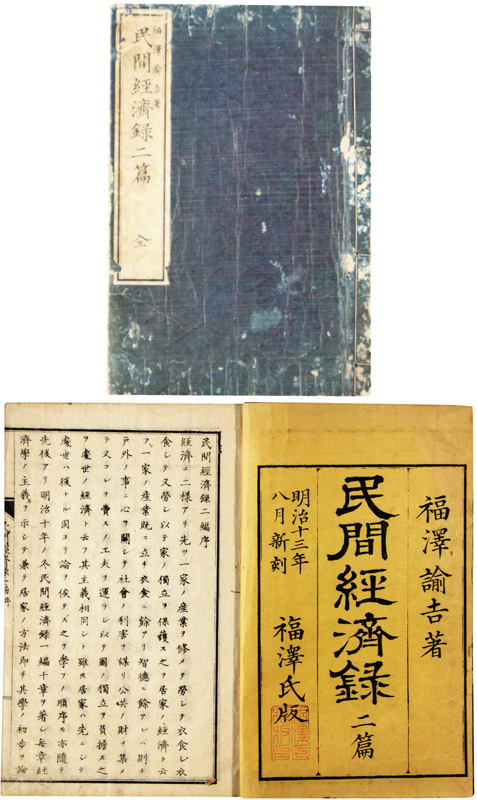 福澤諭吉著
民間經濟録二篇
全
福澤諭吉著
民間經濟録 二篇
明治十三年
八月新刻
福澤氏版
民間經濟録二編序
經濟ニ二様アリ先ツ一家ノ産業ヲ修メ勞シテ衣食シ衣
食シテ又勞シ以テ家ノ獨立ヲ保護スル之ヲ居家ノ經濟ト云
フ一家ノ産業既ニ立チ衣食ニ餘アリ智德ニ餘アレハ則チ
戸外ノ事ニ心ヲ關シテ社會ノ利害ヲ謀リ公共ノ財ヲ集メ
テ又コレヲ費スノ工夫ヲ運ラシ以テ國ノ獨立ヲ負擔スル之
ヲ處世ノ經濟ト云フ其主義相同シト雖モ居家ハ先ニシテ
處世ハ後ナル固ヨリ論ヲ俟タス之ヲ學フノ順序モ亦隨テ
先後アリ明治十年ノ冬民間經濟録一編十章ヲ著シ毎章經
濟學ノ主義ヲ示シテ兼テ居家ノ方法即チ其學ノ初歩ヲ論